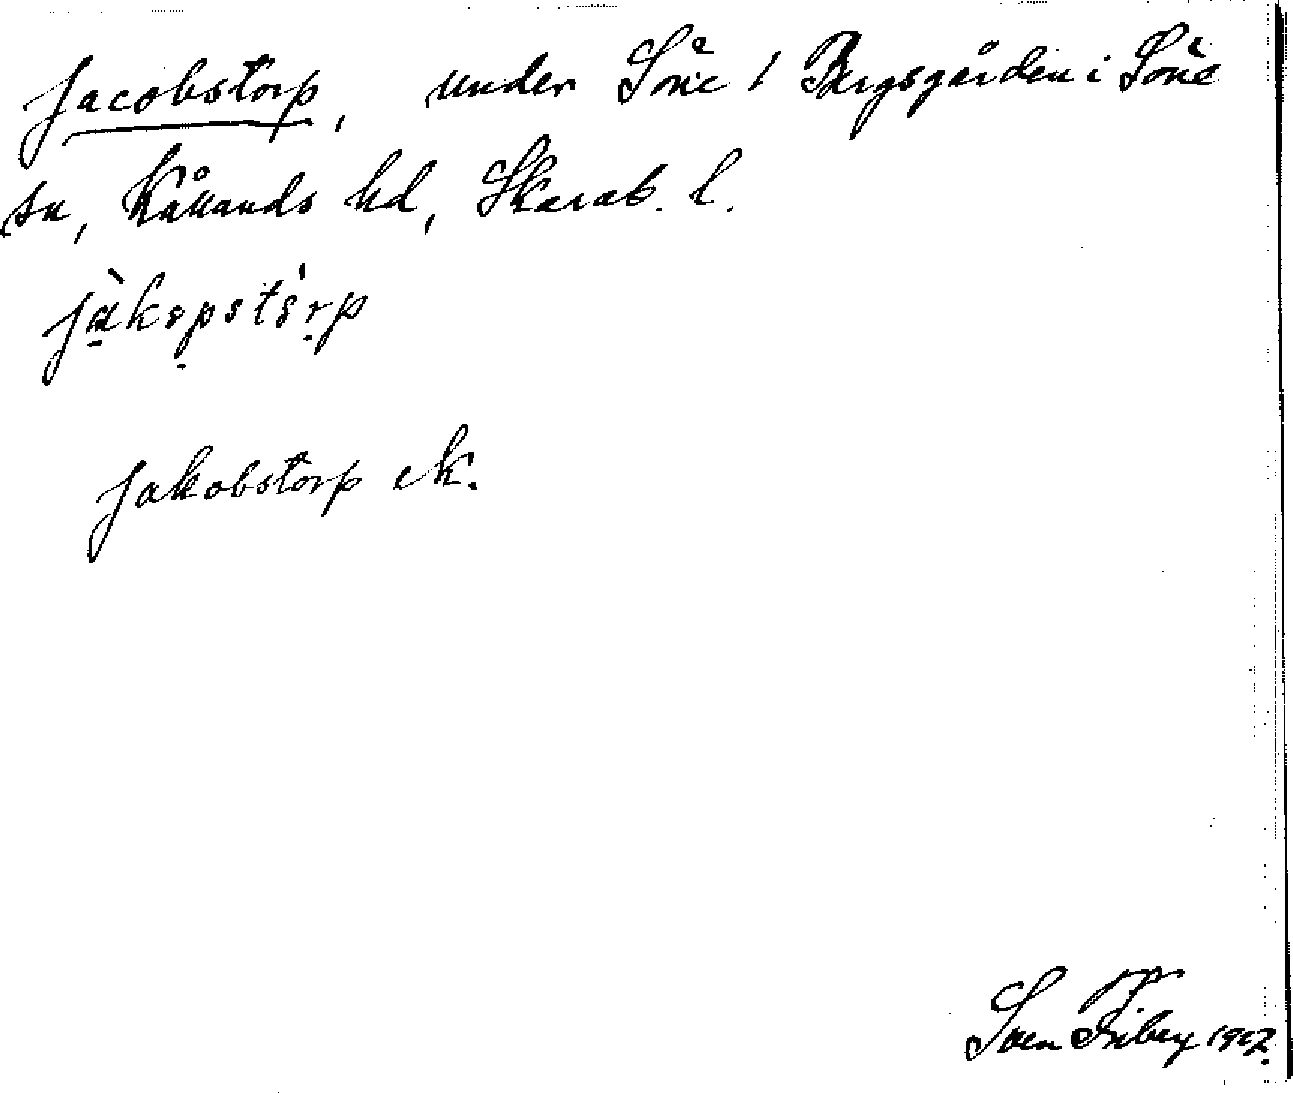 Jacobstorp, under Söne 1 Bergsgården i Söne
sn, Kållands hd, Skarab. l.
jàkɵpstɵ́rp
Jakobstorp ek.
Sven Friberg 1902.